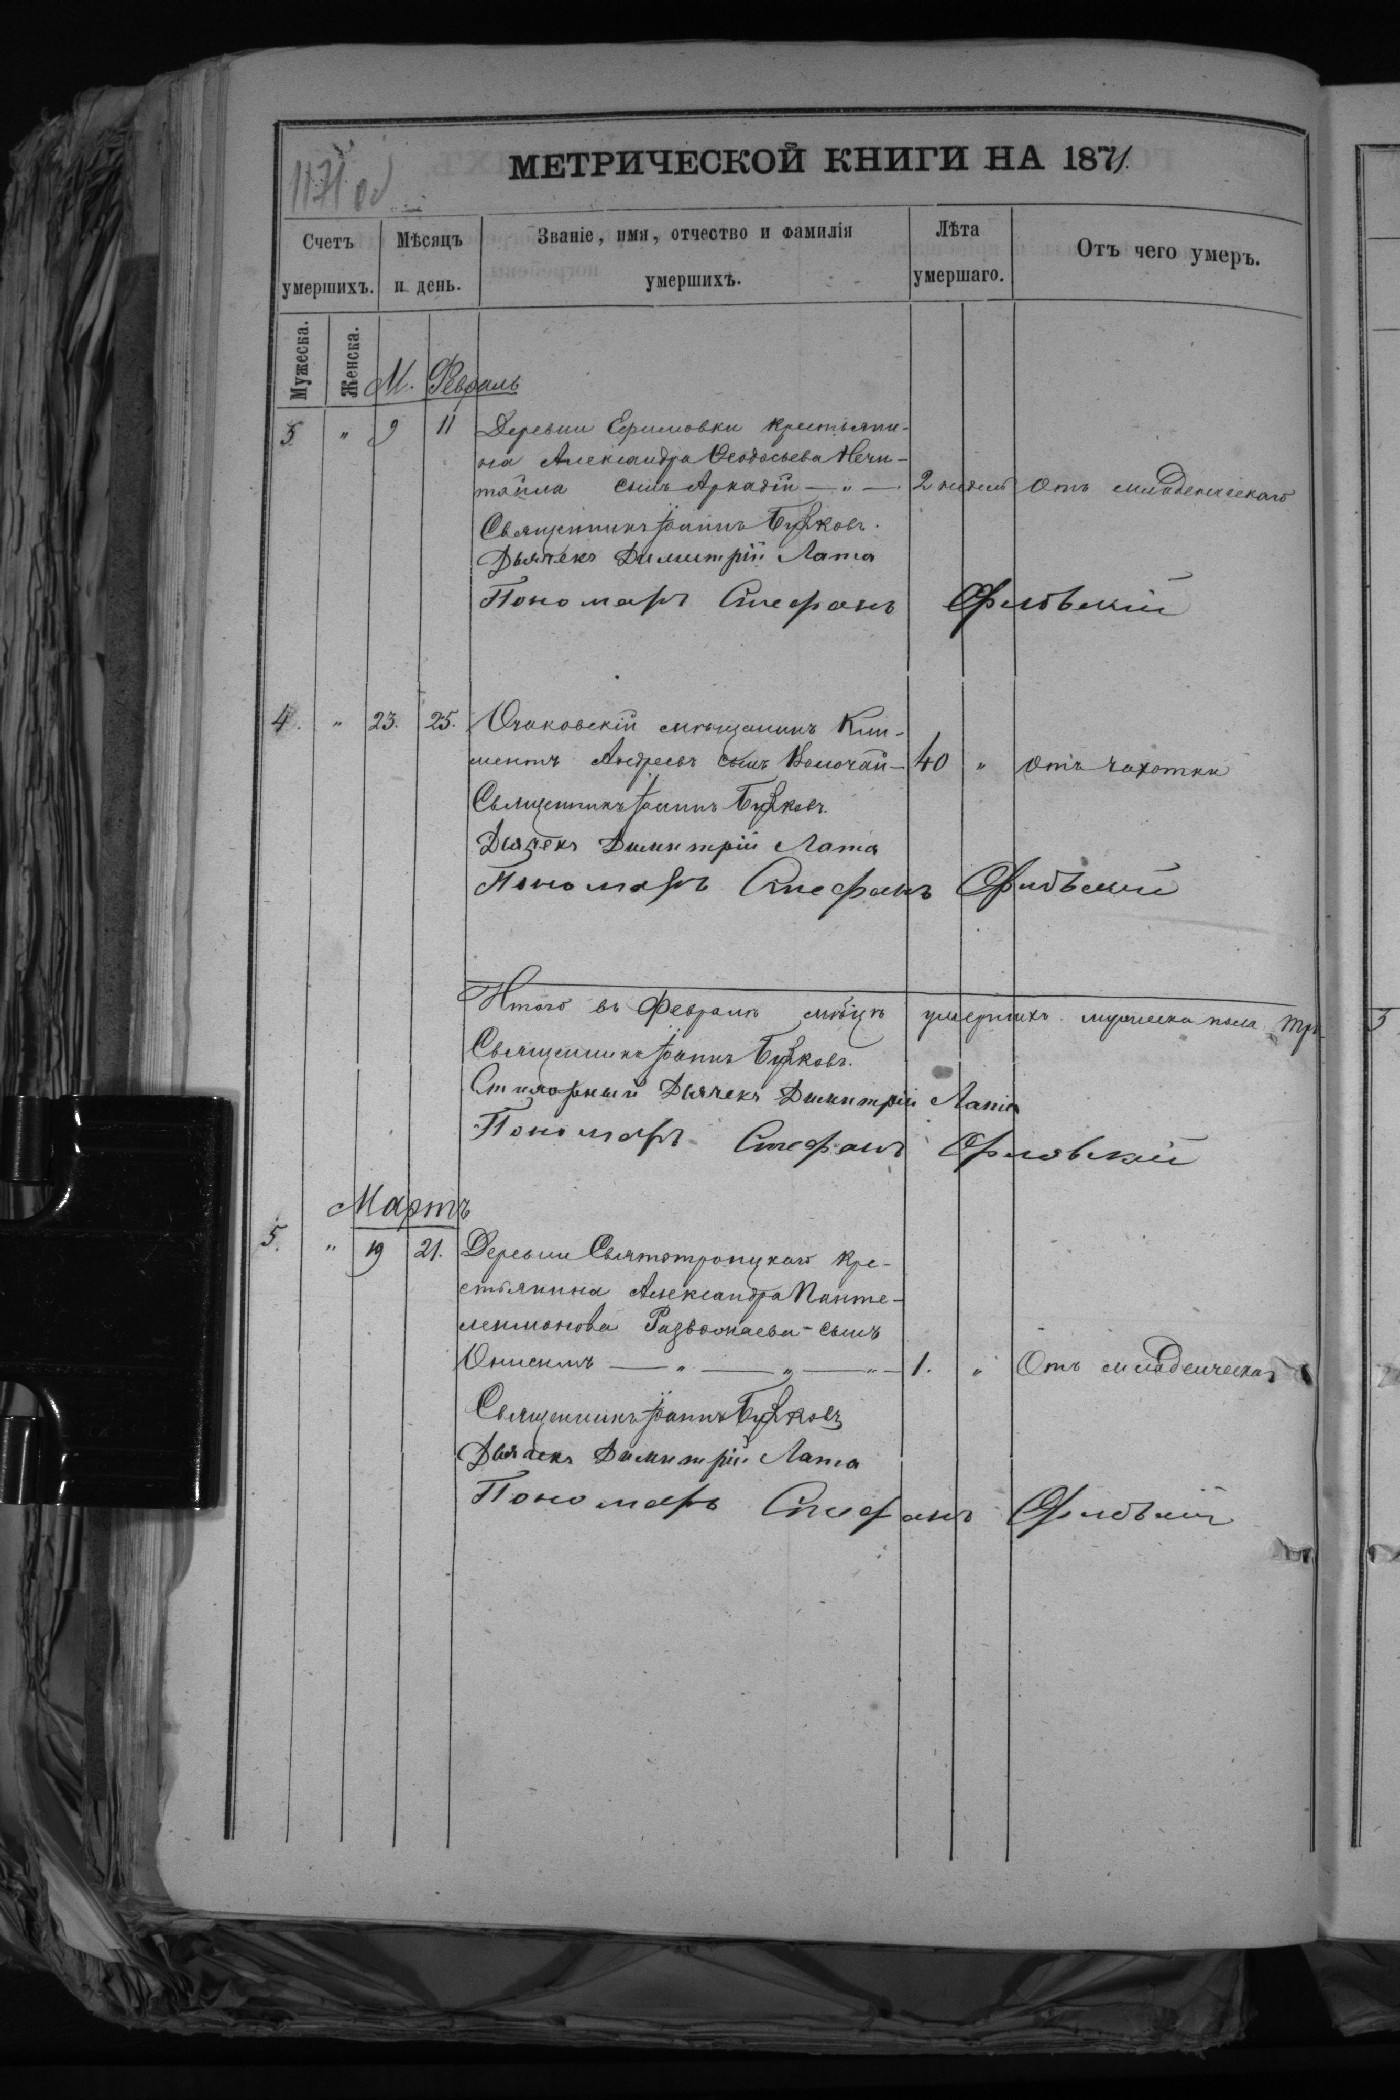 1171 об
МЕТРИЧЕСКОЙ КНИГИ НА 1871.
Счетъ умершихъ.
Мѣсяцъ и день.
Званіе, имя, отчество и фамилія умершихъ.
Лѣта умершаго.
Отъ чего умеръ.
Мужеска.
Женска.
М. Февраль
3 " 9 11 Деревни Ефимовки крестьяни-
на Александра Ѳеодосьева Нечи-
тайла сынъ Аркадій — " — 2 недель Отъ младенческаго
Священникъ Іоаннъ
Дьячекъ Димитрій Лата
Пономарь Стефанъ Орловскій
4. " 23. 25. Очаковскій мѣщанинъ Кли-
ментъ Андреевъ сынъ 40 " отъ чахотки
Священникъ Іоаннъ
Дьячекъ Димитрій Лата
Пономарь Стефанъ Орловскій
Итого въ Февралѣ мѣсяцѣ умершихъ мужеска пола три
Священникъ Іоаннъ
Дьячекъ Димитрій Лата
Пономарь Стефанъ Орловскій
Мартъ
5. " 19 21. Деревни Святотроицкаго кре-
стьянина Александра Панте-
леимонова сынъ
Онисимъ — " — " — " — 1. " Отъ младенческаго
Священникъ Іоаннъ
Дьячекъ Димитрій Лата
Пономарь Стефанъ Орловскій